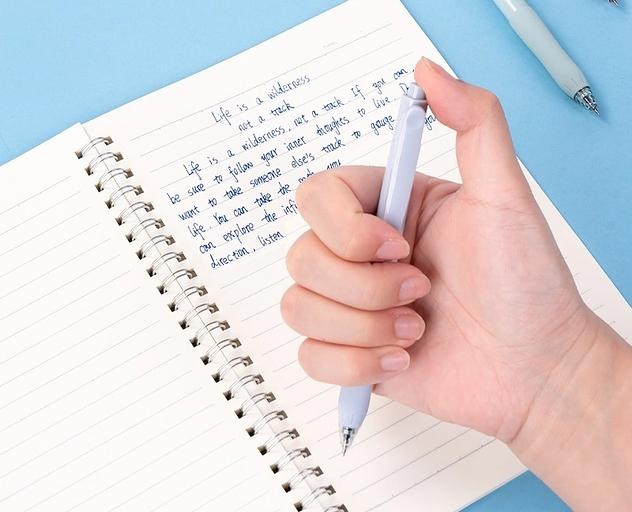 Life is a wilderness
not a track
Life is a wilderness, not a track. If you can
be sure to follow your inner thoughts to live. Do
want to take someone else's track to gauge you
life. You can take the road you
can explore the inf
direction, listen